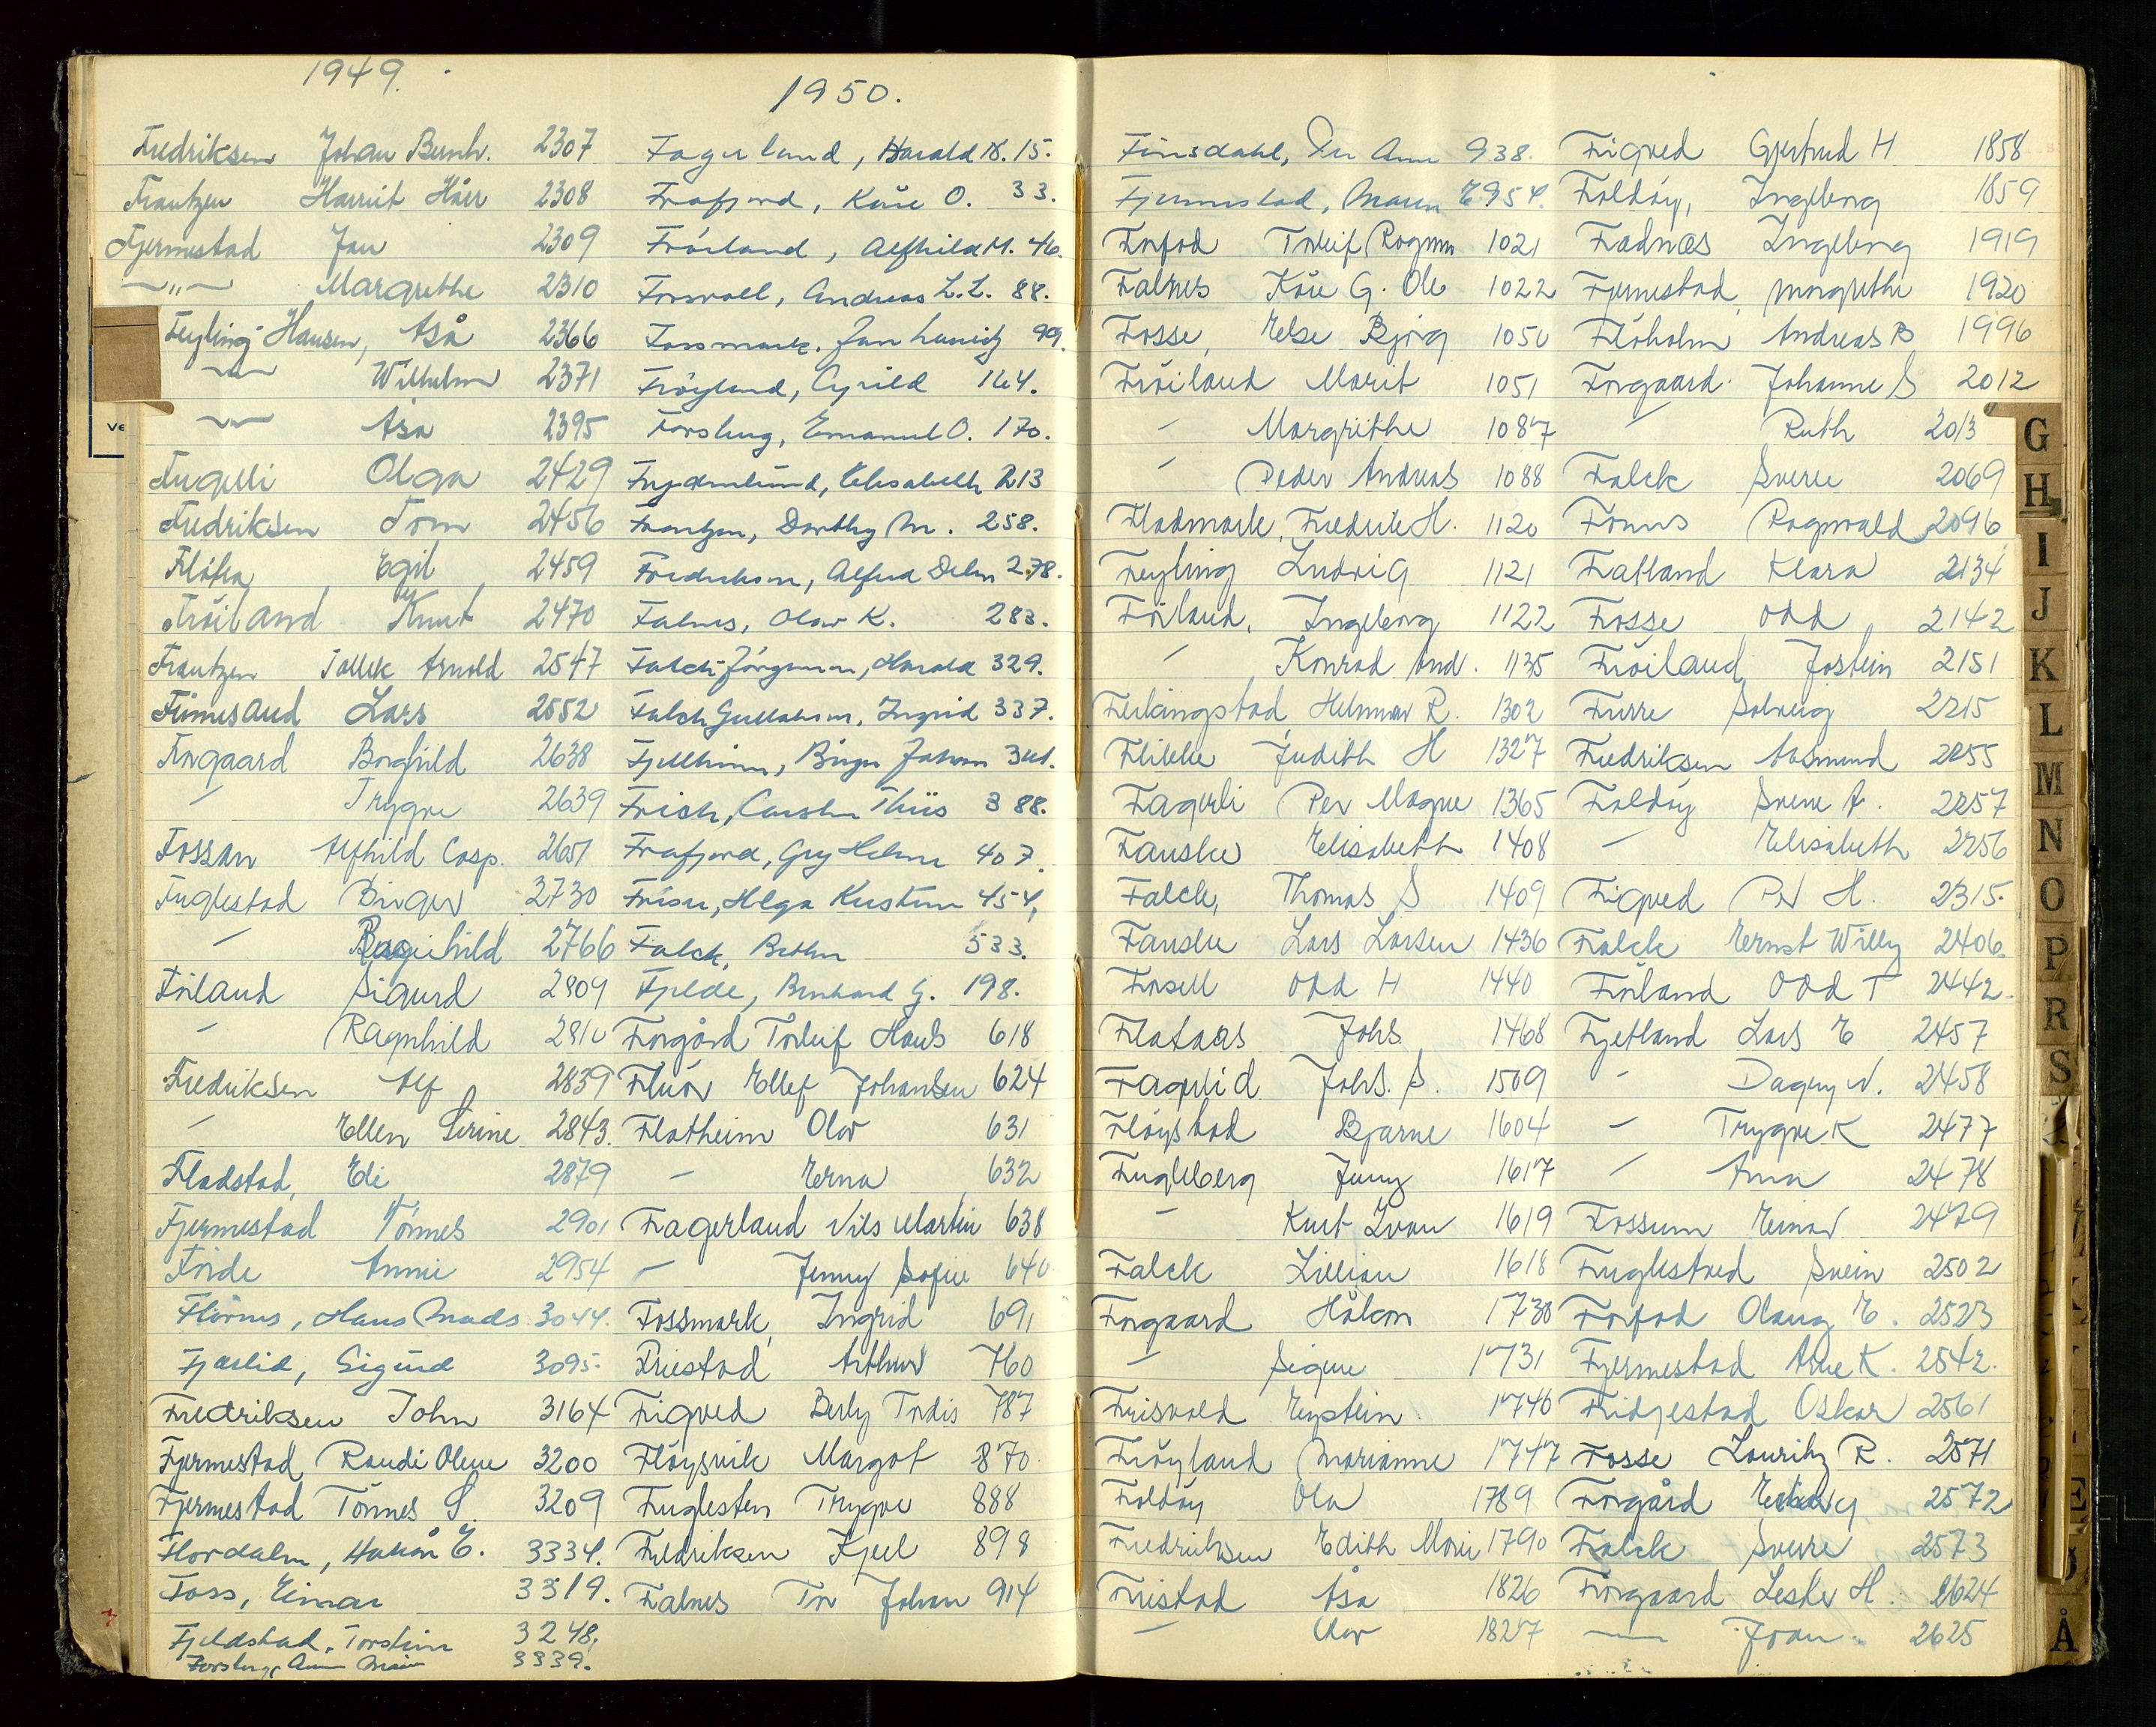 1949.
Fredriksen Johan Bernh. 2307
Frantzen Harriet Hårr 2308
Fjermestad Jan 2309
—"— Margrethe 2310
Feyling Hansen, Åså 2366
—"— Wilhelm 2371
—"— Åsa 2395
Fugelli Olga 2429
Fredriksen Tom 2456
Egil 2459
Fröiland Knut 2470
Frantzen Arnold 2547
Finnesand Lars 2552
Forgaard Borghild 2638
— Trygve 2639
Fossan Alfhild Casp. 2651
Fuglestad Birger 2730
— Ragnhild 2766
Förland Sigurd 2809
— Ragnhild 2810
Fredriksen Alf 2839
— Ellen Sirine 2843.
Fladstad, Edi 2879
Fjermestad Tönnes 2901
Förde Annie 2954
Flörnes, Hans Mads 3044.
Fjærlid, Sigurd 3095.
Fredriksen John 3164
Fjermestad Randi Olene 3200
Fjermestad Tönnes S. 3209
Flordalm, Håkon E. 3334.
Foss, Einar 3319.
Fjeldstad, Torstein 3248.
Forsberg, Ann Marie 3339.
1950.
Fagerland, Harald K. 15.
Frafjord, Kåre O. 33.
Fröiland, Alfhild M. 46.
Forsvall, Andreas L.L. 88.
Fossmark, Jan Lauritz 99.
Fröyland, Cyrild 164.
Forsberg, Emanuel O. 170.
Frydenlund, Elisabeth 213
Frantzen, Dorthy M. 258.
Fredriksen, Alfred 278.
Falnes, Olav K. 283.
Falch-Jörgensen, Harald 329.
Falch Gullaksen, Ingrid 337.
Fjellheim, Birger Johan 341.
Frich, Carsten Thiis 388.
Frafjord, Gry Helene 407.
Frisen, Helga Kristine 454,
Falck, Bethen 533.
Fjelde, Bernhard G. 198.
Forgård Torleif Hauls 618
Fluör Ellef Johansen 624
Flatheim Olav 631
— Erna 632
Fagerland Nils Martin 638
— Jenny Sofie 640
Fossmark, Ingrid 691
Friestad Arthur 760
Figved Berly Tordis 787
Flöysvik Margot 870
Fuglesten Trygve 888
Fredriksen Kjell 898
Falnes Tor Johan 914
Finsdahl, Per Arne 938.
Fjermestad, Maren E 954.
Forfod Torleif Ragnar 1021
Falnes Kåre G. Ole 1022
Fosse, Else Bjørg 1050
Fröiland Marit 1051
— Margrethe 1087
— Peder Andreas 1088
Fladmark, Fredrik H. 1120
Feyling Ludvig 1121
Förland, Ingeborg 1122
— Konrad And. 1135
Ferkingstad, Helmer R. 1302
Flikke Judith H 1327
Fagerli Per Magne 1365
Fauske Elisabeth 1408
Falck, Thomas S 1409
Fauske Lars Larsen 1436
Fosell Odd H 1440
Flataas Johs 1468
Fagerlid Johs. S. 1509
Flöystad Bjarne 1604
Fugleberg Jenny 1617
— Knut Ivan 1619
Falck Lillian 1618
Forgaard Håkon 1730
— Signe 1731
Frisvold Eystein 1746
Fröyland Marianne 1747
Foldöy Ola 1789
Fredriksen Edith Marie 1790
Fristad Åsa 1826
— Olav 1827
Figved Gjertrud H 1858
Foldöy, Ingeborg 1859
Fadnæs Ingeborg 1919
Fjermestad, Margrethe 1920
Flöholm Andreas B 1996
Forgaard Johanne S 2012
— Ruth 2013
Falck Sverre 2069
Fonns Ragnvald 2096
Fatland Klara 2134
Fosse Odd 2142
Fröiland Jostein 2151
Furre Solveig 2215
Fredriksen Aasmund 2255
Foldöy Svene A. 2257
— Elisabeth 2256
Figved Per H. 2315.
Falck Ernst Willy 2406.
Förland Odd T 2442.
Fjetland Lars E 2457
— Dagny N. 2458
— Trygve K 2477
— Anna 2478
Fossum Einar 2479
Fuglestved Svein 2502
Forfod Olaug E. 2523
Fjermestad Arne K. 2542.
Fidjestad Oskar 2561
Fosse Lauritz R. 2571
Forgård 2572
Falck Sverre 2573
Forgaard Lester H. 2624
— Joan 2625
G
H
I
J
K
L
M
N
O
P
R
S
E
Å
ve